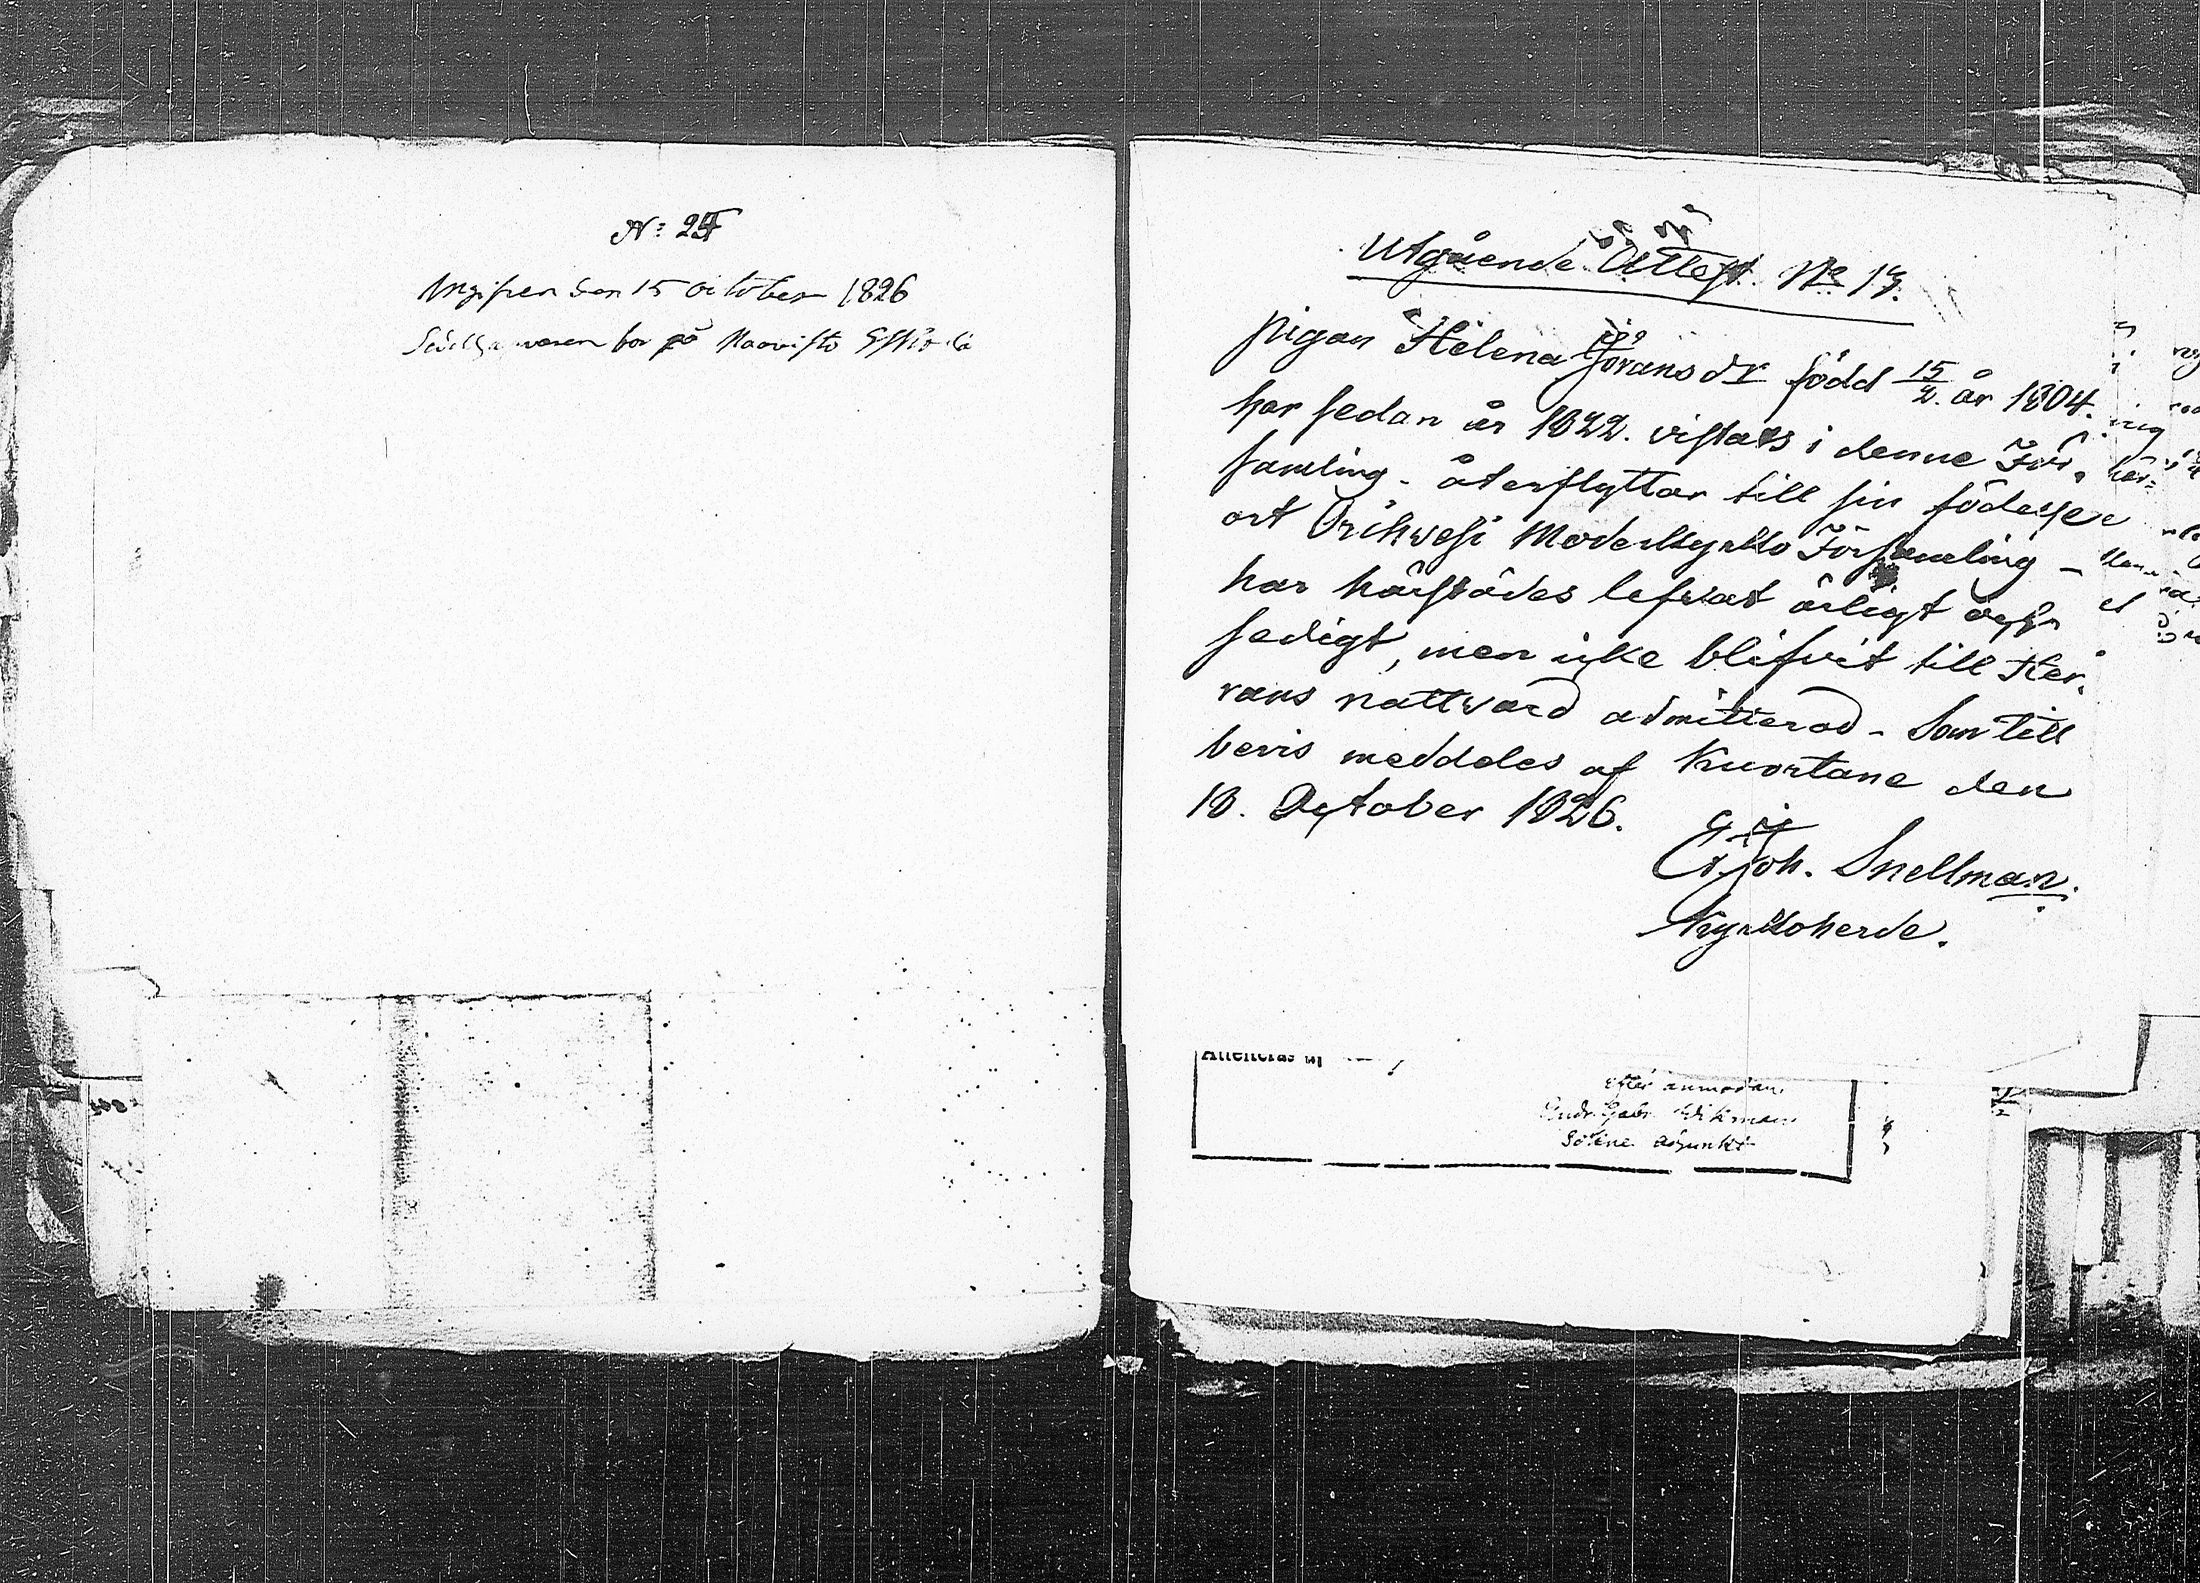 N: 25
Angifven den 15 october 1826
bor på
Utgående Attest. No 13.
Pigan Helena Göransdr född 15/2. år 1804.
har sedan år 1822. vistats i denne För-
samling - återflyttar till sin födelse
ort Orihvesi Moderkyrko Församling -
har härstädes lefvat ärligt och
sedigt, men icke blifvit till Her-
rans nattvard admitterad - Som till
bevis meddeles af Kuortane den
10. October 1826.
Er. Joh. Snellman.
Kyrkoherde.
Attesteras af
efter anmodan
Andr. Gabr. Wikman
Adjunkt